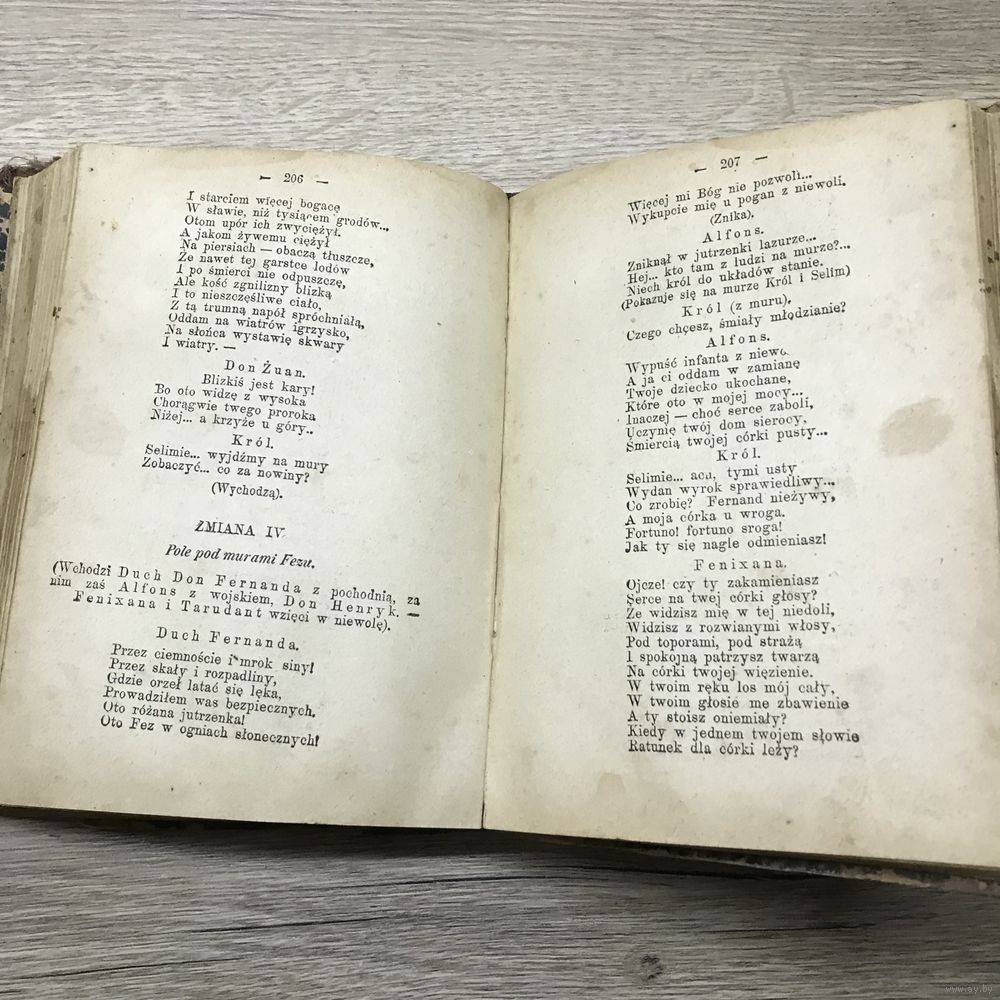 — 206 —
I starciem więcej bogacę
W sławie, niż tysiącem grodów...
Otom upór ich zwyciężył.
A jakom żywemu ciężył
Na piersiach — obaczą tłuszcze,
Że nawet tej garstce lodów
I po śmierci nie odpuszczę,
Ale kość zgnilizny blizką
I to nieszczęśliwe ciało,
Z tą trumną napół spróchniałą,
Oddam na wiatrów igrzysko,
Na słońca wystawię skwary
I wiatry. —
Don Żuan.
Blizkiś jest kary!
Bo oto widzę z wysoka
Chorągwie twego proroka
Niżej... a krzyże u góry..
Król.
Selimie... wyjdźmy na mury
Zobaczyć... co za nowiny?
(Wychodzą).
ZMIANA IV.
Pole pod murami Fezu.
(Wchodzi Duch Don Fernanda z pochodnią, za
nim zaś Alfons z wojskiem, Don Henryk. —
Fenixana i Tarudant wzięci w niewolę).
Duch Fernanda.
Przez ciemności e i mrok siny!
Przez skały i rozpadliny,
Gdzie orzeł latać się lęka,
Prowadziłem was bezpiecznych.
Oto różana jutrzenka!
Oto Fez w ogniach słonecznych!
— 207 —
Więcej mi Bóg nie pozwoli...
Wykupcie mię u pogan z niewoli.
(Znika).
Alfons.
Zniknął w jutrzenki lazurze...
Hej... kto tam z ludzi na murze?...
Niech król do układów stanie.
(Pokazuje się na murze Król i Selim)
Król (z muru).
Czego chcesz, śmiały młodzianie?
Alfons.
Wypuść infanta z niewo
A ja ci oddam w zamianę
Twoje dziecko ukochane,
Które oto w mojej mocy...
Inaczej — choć serce zaboli,
Uczynię twój dom sierocy,
Śmiercią twojej córki pusty...
Król.
Selimie... ach, tymi usty
Wydan wyrok sprawiedliwy...
Co zrobię? Fernand nieżywy,
A moja córka u wroga.
Fortuno! fortuno sroga!
Jak ty się nagle odmieniasz!
Fenixana.
Ojcze! czy ty zakamieniasz
Serce na twej córki głosy?
Że widzisz mię w tej niedoli,
Widzisz z rozwianymi włosy,
Pod toporami, pod strażą
I spokojną patrzysz twarzą
Na córki twojej więzienie.
W twoim ręku los mój cały,
W twoim głosie me zbawienie
A ty stoisz oniemiały?
Kiedy w jednem twojem słowie
Ratunek dla córki leży?
www.ay.by